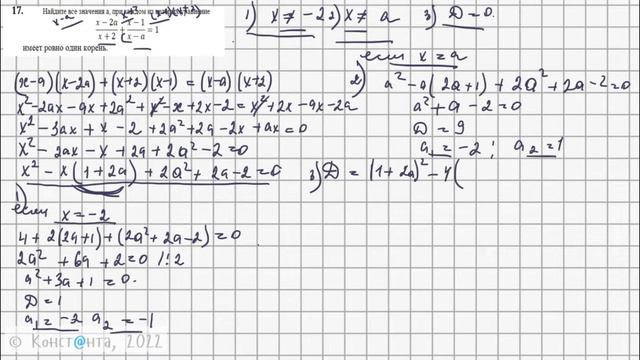 17. Найдите все значения a, при каждом из которых уравнение
x-a x+2 (x-a)(x+2)
(x-2a)/(x+2) + (x-1)/(x-a) = 1
имеет ровно один корень.
1) x ≠ -2 2) x ≠ a 3) D = 0.
(x-a)(x-2a) + (x+2)(x-1) = (x-a)(x+2)
x²-2ax-ax+2a²+x²-x+2x-2 = x²+2x-ax-2a
x²-3ax+x-2+2a²+2a-2x+ax=0
x²-2ax-x+2a+2a²-2=0
x²-x(1+2a)+2a²+2a-2=0
1)
если x=-2
4+2(2a+1)+(2a²+2a-2)=0
2a²+6a+2=0 /:2
a²+3a+1=0.
D=1
a₁=-2 a₂=-1
2) если x=a
a²-a(2a+1)+2a²+2a-2=0
a²+a-2=0
D=9
a₁=-2; a₂=1
3) D=(1+2a)²-4(
© Конст@нта, 2022